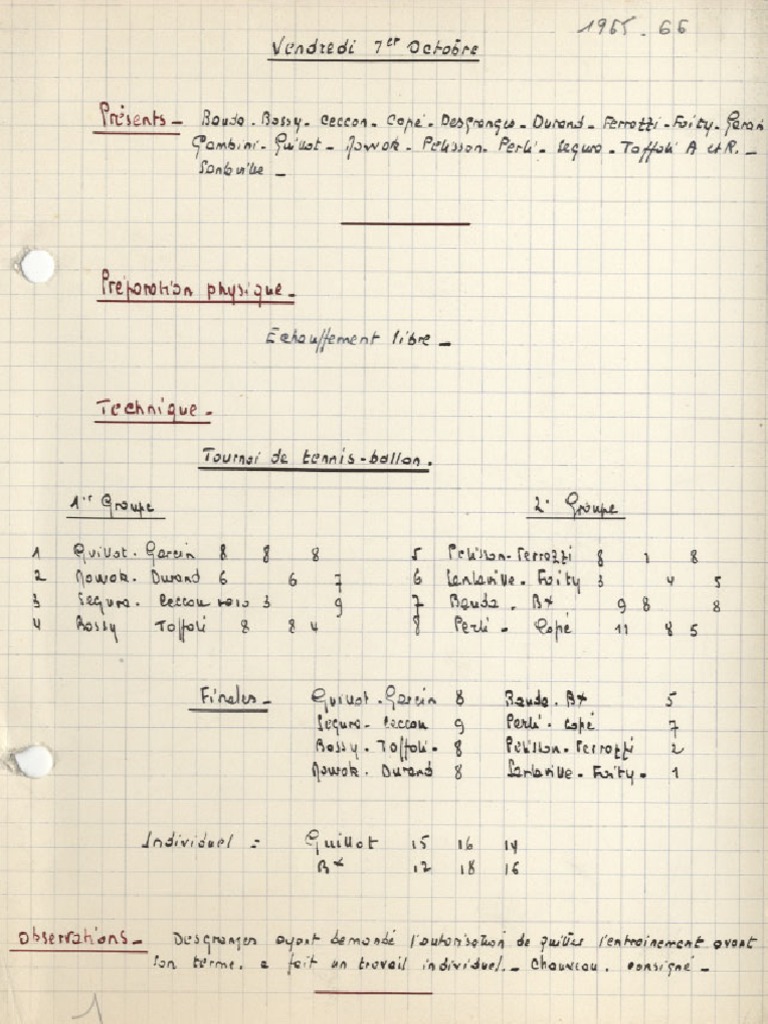 1965.66
Vendredi 7er Octobre
Présents - Bauda - Bossy - Ceccon - Copé - Desgranges - Durand - Ferrozzi - Foity - Garcin
Gambini - Guillot - Nowok - Pelisson - Perli - Segura - Toffoli A et R. -
Santaville -
Préparation physique -
Echauffement libre -
Technique -
Tournoi de tennis-ballon.
1er Groupe 2e Groupe
1 Guillot - Garcin 8 8 8 5 Pelisson - Ferrozzi 8 1 8
2 Nowok - Durand 6 6 7 6 Santaville - Foity 3 4 5
3 Segura - Ceccon 3 9 7 Bauda - Bx 9 8 8
4 Bossy Toffoli 8 8 4 8 Perli - Copé 11 8 5
Finales - Guillot - Garcin 8 Bauda - Bx 5
Segura - Ceccon 9 Perli - Copé 7
Bossy - Toffoli - 8 Pelisson - Ferrozzi 2
Nowok - Durand 8 Santaville - Foity - 1
Individuel = Guillot 15 16 14
Bx 12 18 16
Observations - Desgranges ayant demandé l'autorisation de quitter l'entrainement avant
son terme, a fait un travail individuel. - Chauveau consigné -
1